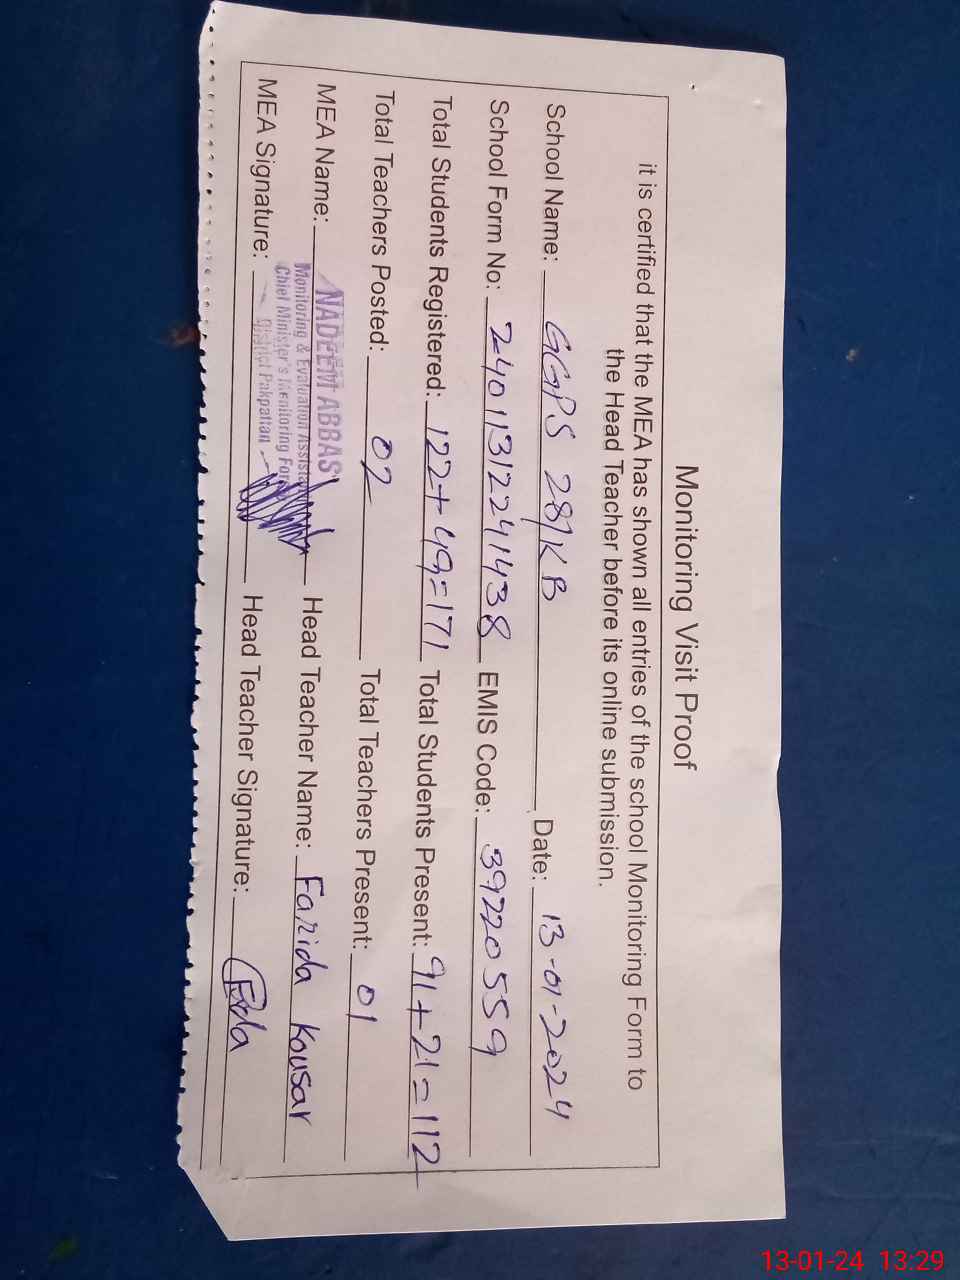 Monitoring Visit Proof
it is certified that the MEA has shown all entries of the school Monitoring Form to
the Head Teacher before its online submission.
School Name: GGPS 28/KB Date: 13-01-2024
School Form No: 24011312241438 EMIS Code: 39220559
Total Students Registered: 122+49=171 Total Students Present: 91+21=112
Total Teachers Posted: 02 Total Teachers Present: 01
MEA Name: NADEEM ABBAS Head Teacher Name: Farida Kousar
Monitoring & Evaluation Assistant
Chief Minister's Monitoring Force
District Pakpattan
MEA Signature: Head Teacher Signature:
13-01-24 13:29